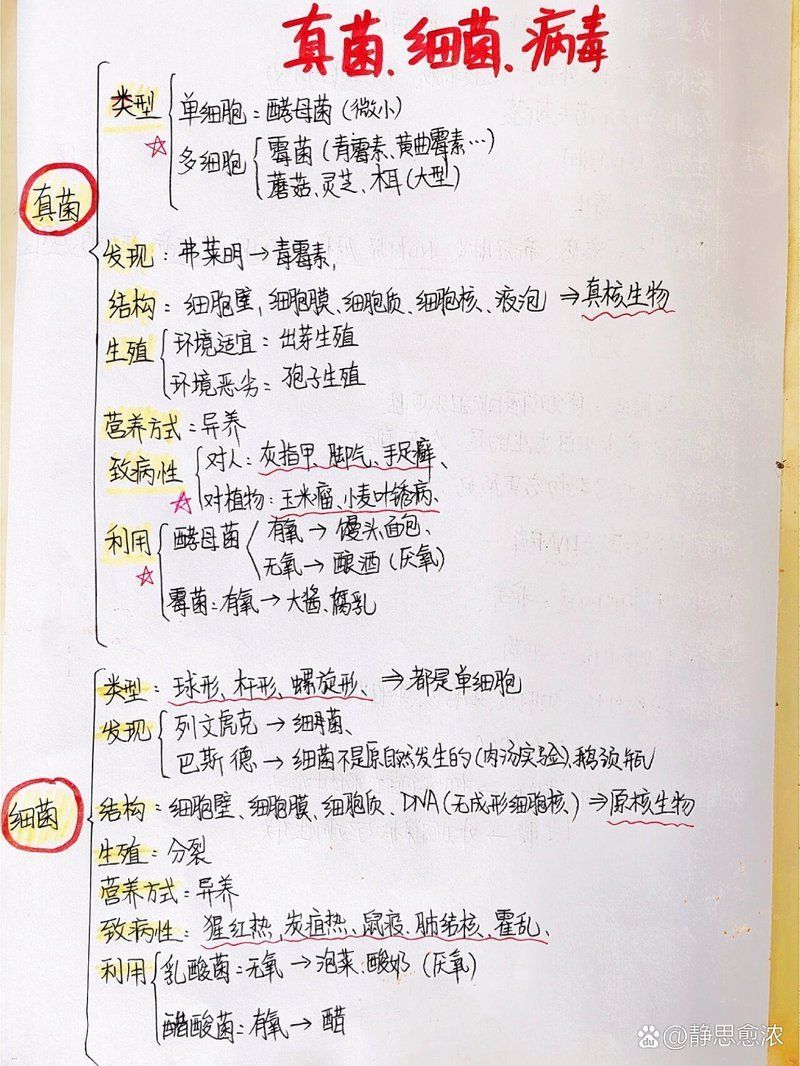 真菌、细菌、病毒
真菌
类型
单细胞：酵母菌（微小）
多细胞
霉菌（青霉素、黄曲霉素…）
蘑菇、灵芝、木耳（大型）
发现：弗莱明→青霉素，
结构：细胞壁，细胞膜、细胞质、细胞核、液泡 ⇒真核生物
生殖
环境适宜：出芽生殖
环境恶劣：孢子生殖
营养方式：异养
致病性
对人：灰指甲、脚气、手足癣、
对植物：玉米瘤、小麦叶锈病、
利用
酵母菌
有氧→馒头面包、
无氧→酿酒（厌氧）
霉菌：有氧→大酱、腐乳
细菌
类型：球形、杆形、螺旋形、⇒都是单细胞
发现
列文虎克→细菌、
巴斯德→细菌不是原自然发生的（肉汤实验）、鹅颈瓶
结构：细胞壁、细胞膜、细胞质、DNA（无成形细胞核）⇒原核生物
生殖：分裂
营养方式：异养
致病性：猩红热，炭疽热、鼠疫、肺结核、霍乱、
利用
乳酸菌：无氧→泡菜、酸奶（厌氧）
醋酸菌：有氧→醋
Bai@静思愈浓